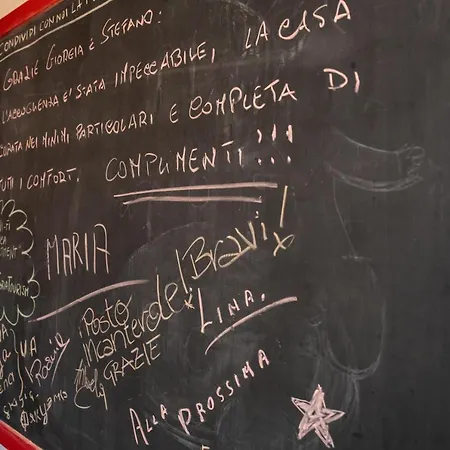 CONDIVIDI CON NOI LA
GRAZIE GIORGIA E STEFANO:
L'ACCOGLIENZA E' STATA IMPECCABILE, LA CASA
CURATA NEI MINIMI PARTICOLARI E COMPLETA DI
TUTTI I COMFORT. COMPLIMENTI!!!
MARIA
Bravi!
Posto
incantevole!
GRAZIE
LINA.
ALLA PROSSIMA